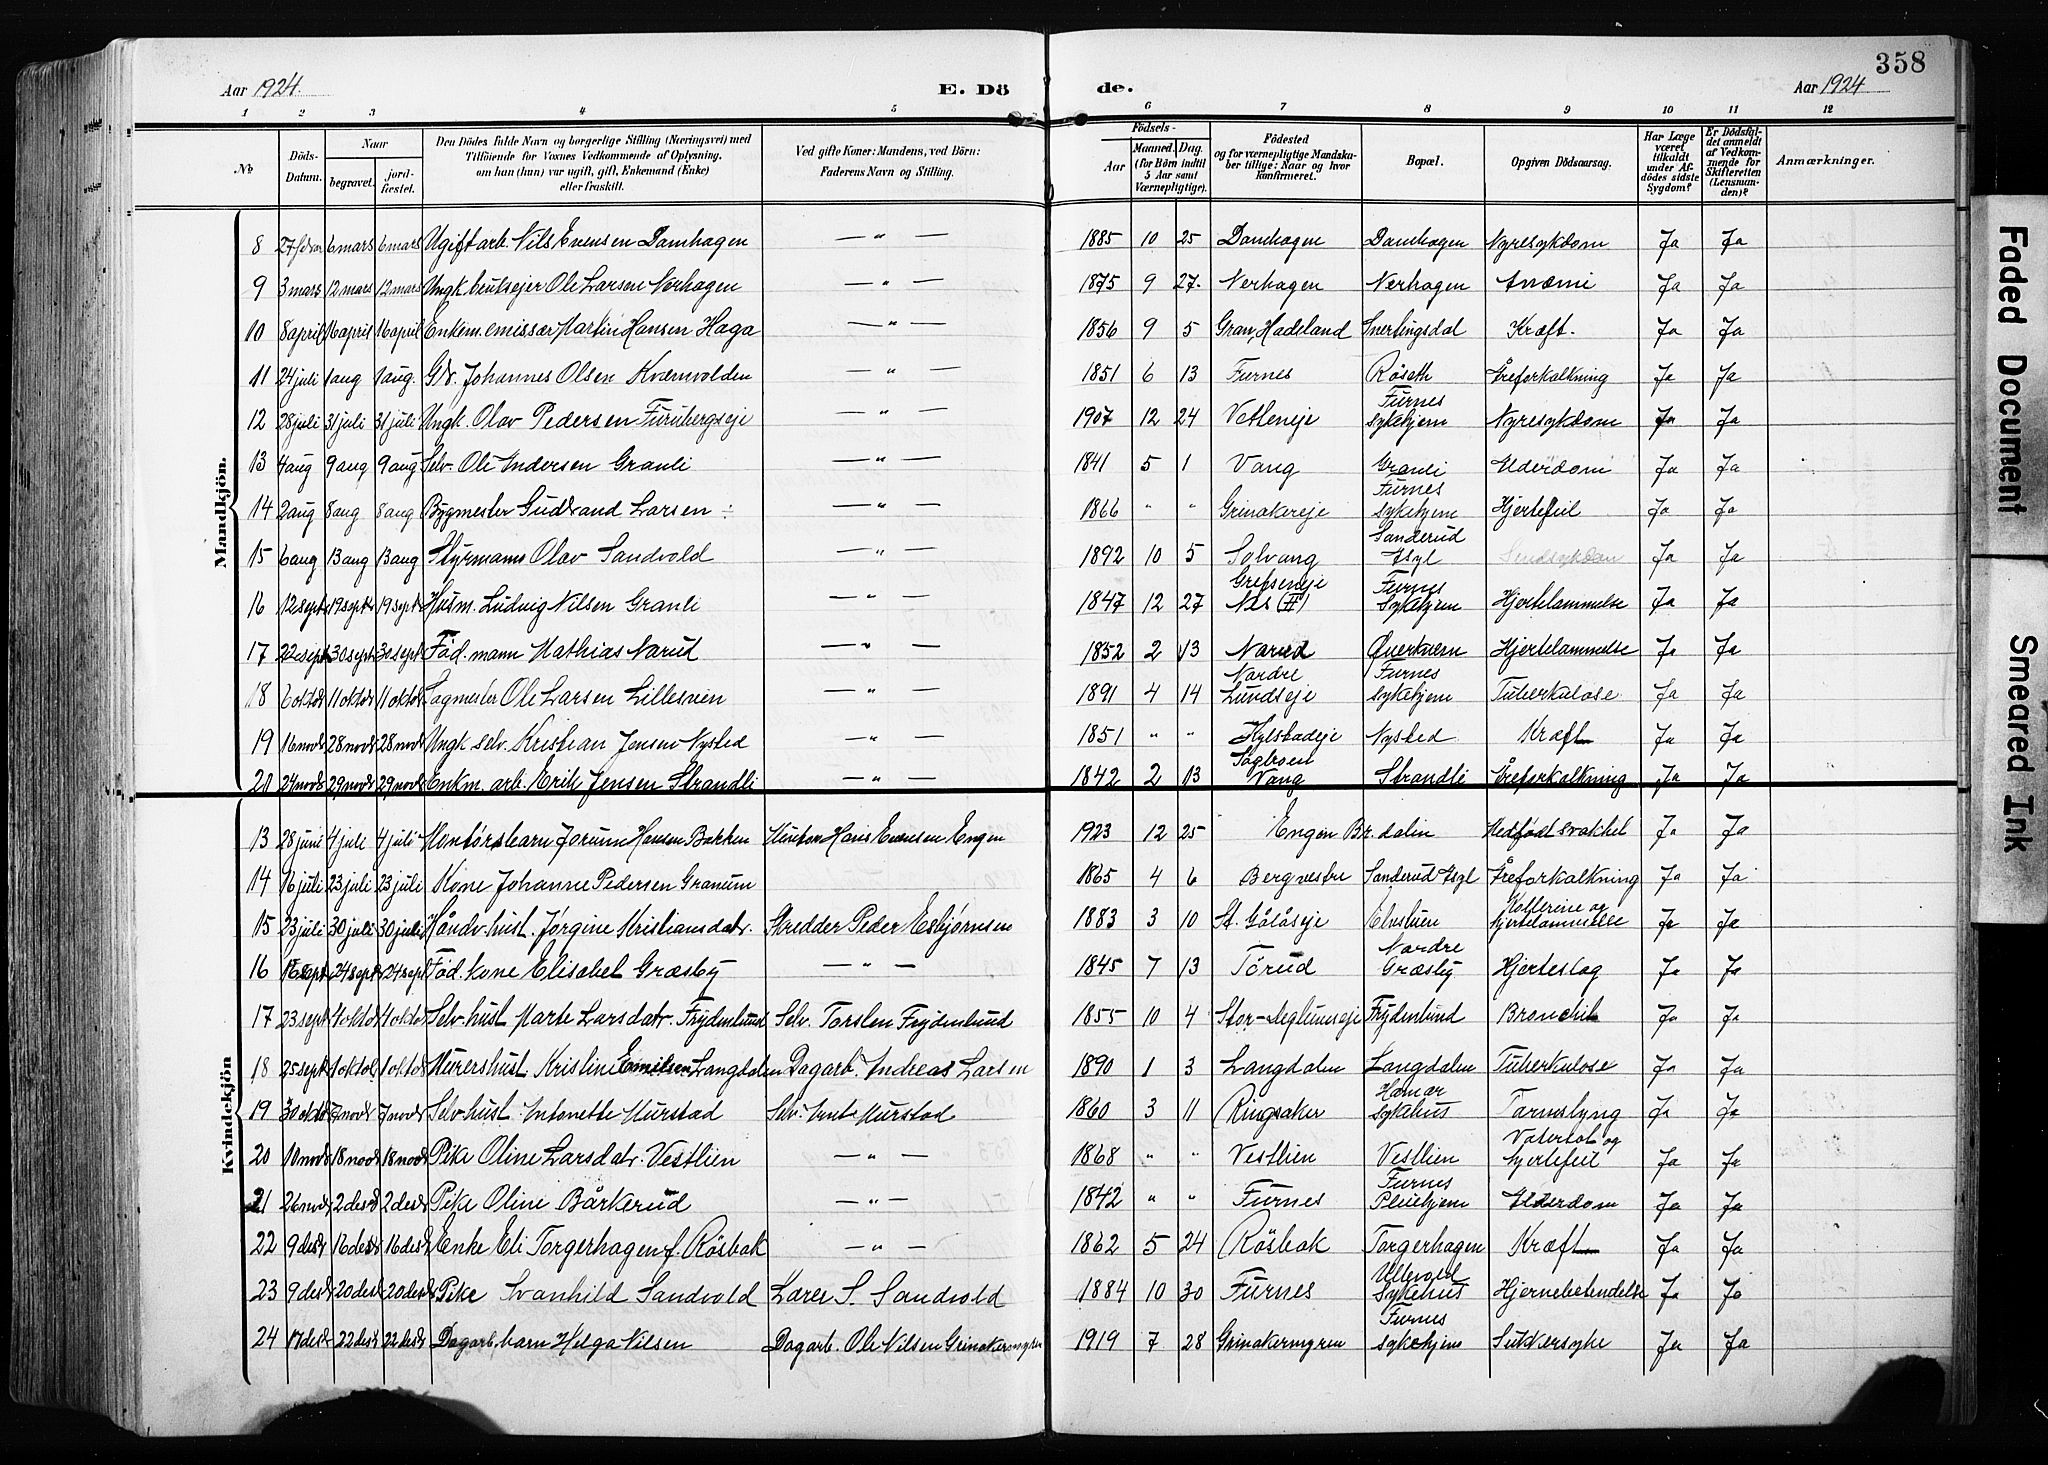 358
Aar 1924.
E. Dö
de.
Aar 1924
1 2 3 4 5 6 7 8 9 10 11 12
№
Döds-Datum.
Naar
begravet.
jordfæstet.
Den Dödes fulde Navn og borgerlige Stilling (Næringsvei) med Tilföiende for Voxnes Vedkommende af Oplysning, om han (hun) var ugift, gift, Enkemand (Enke) eller fraskilt.
Ved gifte Koner: Mandens, ved Börn: Faderens Navn og Stilling.
Födsels-
Aar
Maaned. Dag.
(for Börn indtil 5 Aar samt Værnepligtige).
Födested og for værnepligtige Mandskaber tillige: Naar og hvor konfirmeret.
Bopæl.
Opgiven Dödsaarsag.
Har Læge været tilkaldt under Afdödes sidste Sygdom?
Er Dödsfaldet anmeldt af Vedkommende for Skifteretten (Lensmanden)?
Anmærkninger.
Mandkjön.
8 27 febr 6 mars 6 mars Ugift arb. Nils Evensen Damhagen — " — 1885 10 25 Damhagen Damhagen Nyresykdom Ja Ja
9 3 mars 12 mars 12 mars Ungk. bruksejer Ole Larsen Nerhagen — " — 1875 9 27. Nerhagen Nerhagen Anæmi Ja Ja
10 8 april 16 april 16 april Enkem. emissær Martin Hansen Haga — " — 1856 9 5 Gran, Hadeland Snertingsdal Kræft. Ja Ja
11 24 juli 1 aug 1 aug. Gdr. Johannes Olsen Kværnvolden — " — 1851 6 13 Furnes Röseth Åreforkalkning Ja Ja
12 28 juli 31 juli 31 juli Ungk. Olav Pedersen Furubergseje — " — 1907 12 24 Vetleneje Furnes sykehjem Nyresykdom Ja Ja
13 4 aug 9 aug 9 aug Selv. Ole Andersen Granli — " — 1841 5 1 Vang Granli Alderdom Ja Ja
14 2 aug 8 aug 8 aug Bygmester Gudbrand Larsen — " — 1866 " " Grinakereje Furnes sykehjem Hjertefeil Ja Ja
15 6 aug 13 aug 13 aug Styrmann Olav Sandvold — " — 1892 10 5 Solvang Sanderud Asyl Sindsykdom Ja Ja
16 12 sept 19 sept 19 sept Husm. Ludvig Nilsen Granli — " — 1847 12 27 Grefseneje Nes (H) Furnes Sykehjem Hjertelammelse Ja Ja
17 22 sept 30 sept 30 sept Föd. mann Mathias Narud — " — 1852 2 13 Narud Øverkvern Hjertelammelse Ja Ja
18 6 oktbr 11 oktbr 11 oktbr Sagmester Ole Larsen Lillesveen — " — 1891 4 14 Nordre Lundseje Furnes sykehjem Tuberkulose Ja Ja
19 16 novbr 28 novbr 28 novbr Ungk. selv. Kristian Jensen Nysted — " — 1851 " " Hylstadeje Nysted Kræft Ja Ja
20 24 novbr 29 novbr 29 novbr Enkm. arb. Erik Jensen Strandli — " — 1842 2 13 Vang Strandli Åreforkalkning Ja Ja
Kvindekjön
13 28 juni 4 juli 4 juli Montörsbarn Jorunn Hansen Bakken Montör Hans Evensen Engen 1923 12 25 Engen Br. dalin Medfödt svakhet Ja Ja
14 16 juli 23 juli 23 juli Kone Johanne Pedersen Granum 1865 4 6 Berg vestre Sanderud Asyl Åreforkalkning Ja Ja
15 23 juli 30 juli 30 juli Håndv. hust. Jørgine Kristiansdatr. Skredder Peder Esbjørnsen 1883 3 10 St. Gålåseje Elvelien Kolterine og hjertelammelse Ja Ja
16 16 sept 24 sept 24 sept Föd. kone Elisabet Græsby — " — 1845 7 13 Törud Nordre Græsby Hjerteslag Ja Ja
17 23 sept 4 oktbr 4 oktbr Selv. hust Marte Larsdatr. Frydenlund Selv. Torsten Frydenlund 1855 10 4 Stor-Meglumseje Frydenlund Bronchit Ja Ja
18 25 sept 1 oktob. 1 oktob. Murershust. Kristine Emilsen Langdalen Dagarb. Andreas Larsen 1890 1 3 Langdalen Langdalen Tuberkulose Ja Ja
19 30 oktbr 7 novbr 7 novbr Selv. hust. Antonette Murstad Selv. Amt Murstad 1860 3 11 Ringsaker Hamar Sykehus Tarmslyng Ja Ja
20 10 novbr 18 novbr 18 novbr Pike Oline Larsdatr. Vestlien — " — 1868 " " Vestlien Vestlien Vatersot og hjertefeil Ja Ja
21 26 novbr 2 desbr 2 desbr Pike Oline Bårkerud — " — 1842 " " Furnes Furnes Pleiehjem Alderdom Ja Ja
22 9 desbr 16 desbr 16 desbr Enke Eli Torgerhagen f. Rösbak — " — 1862 5 24 Rösbak Torgerhagen Kræft Ja Ja
23 9 desbr 20 desbr 20 desbr Pike Svanhild Sandvold Lærer S. Sandvold 1884 10 30 Furnes Ullevold Sykehus Hjernebetendelse Ja Ja
24 17 desbr 22 desbr 22 desbr Dagarb. barn Helga Nilsen Dagarb. Ole Nilsen Grinakermyren 1919 7 28 Grinakermyren Furnes sykehjem Sukkersyke Ja Ja
Faded Document
Smeared Ink